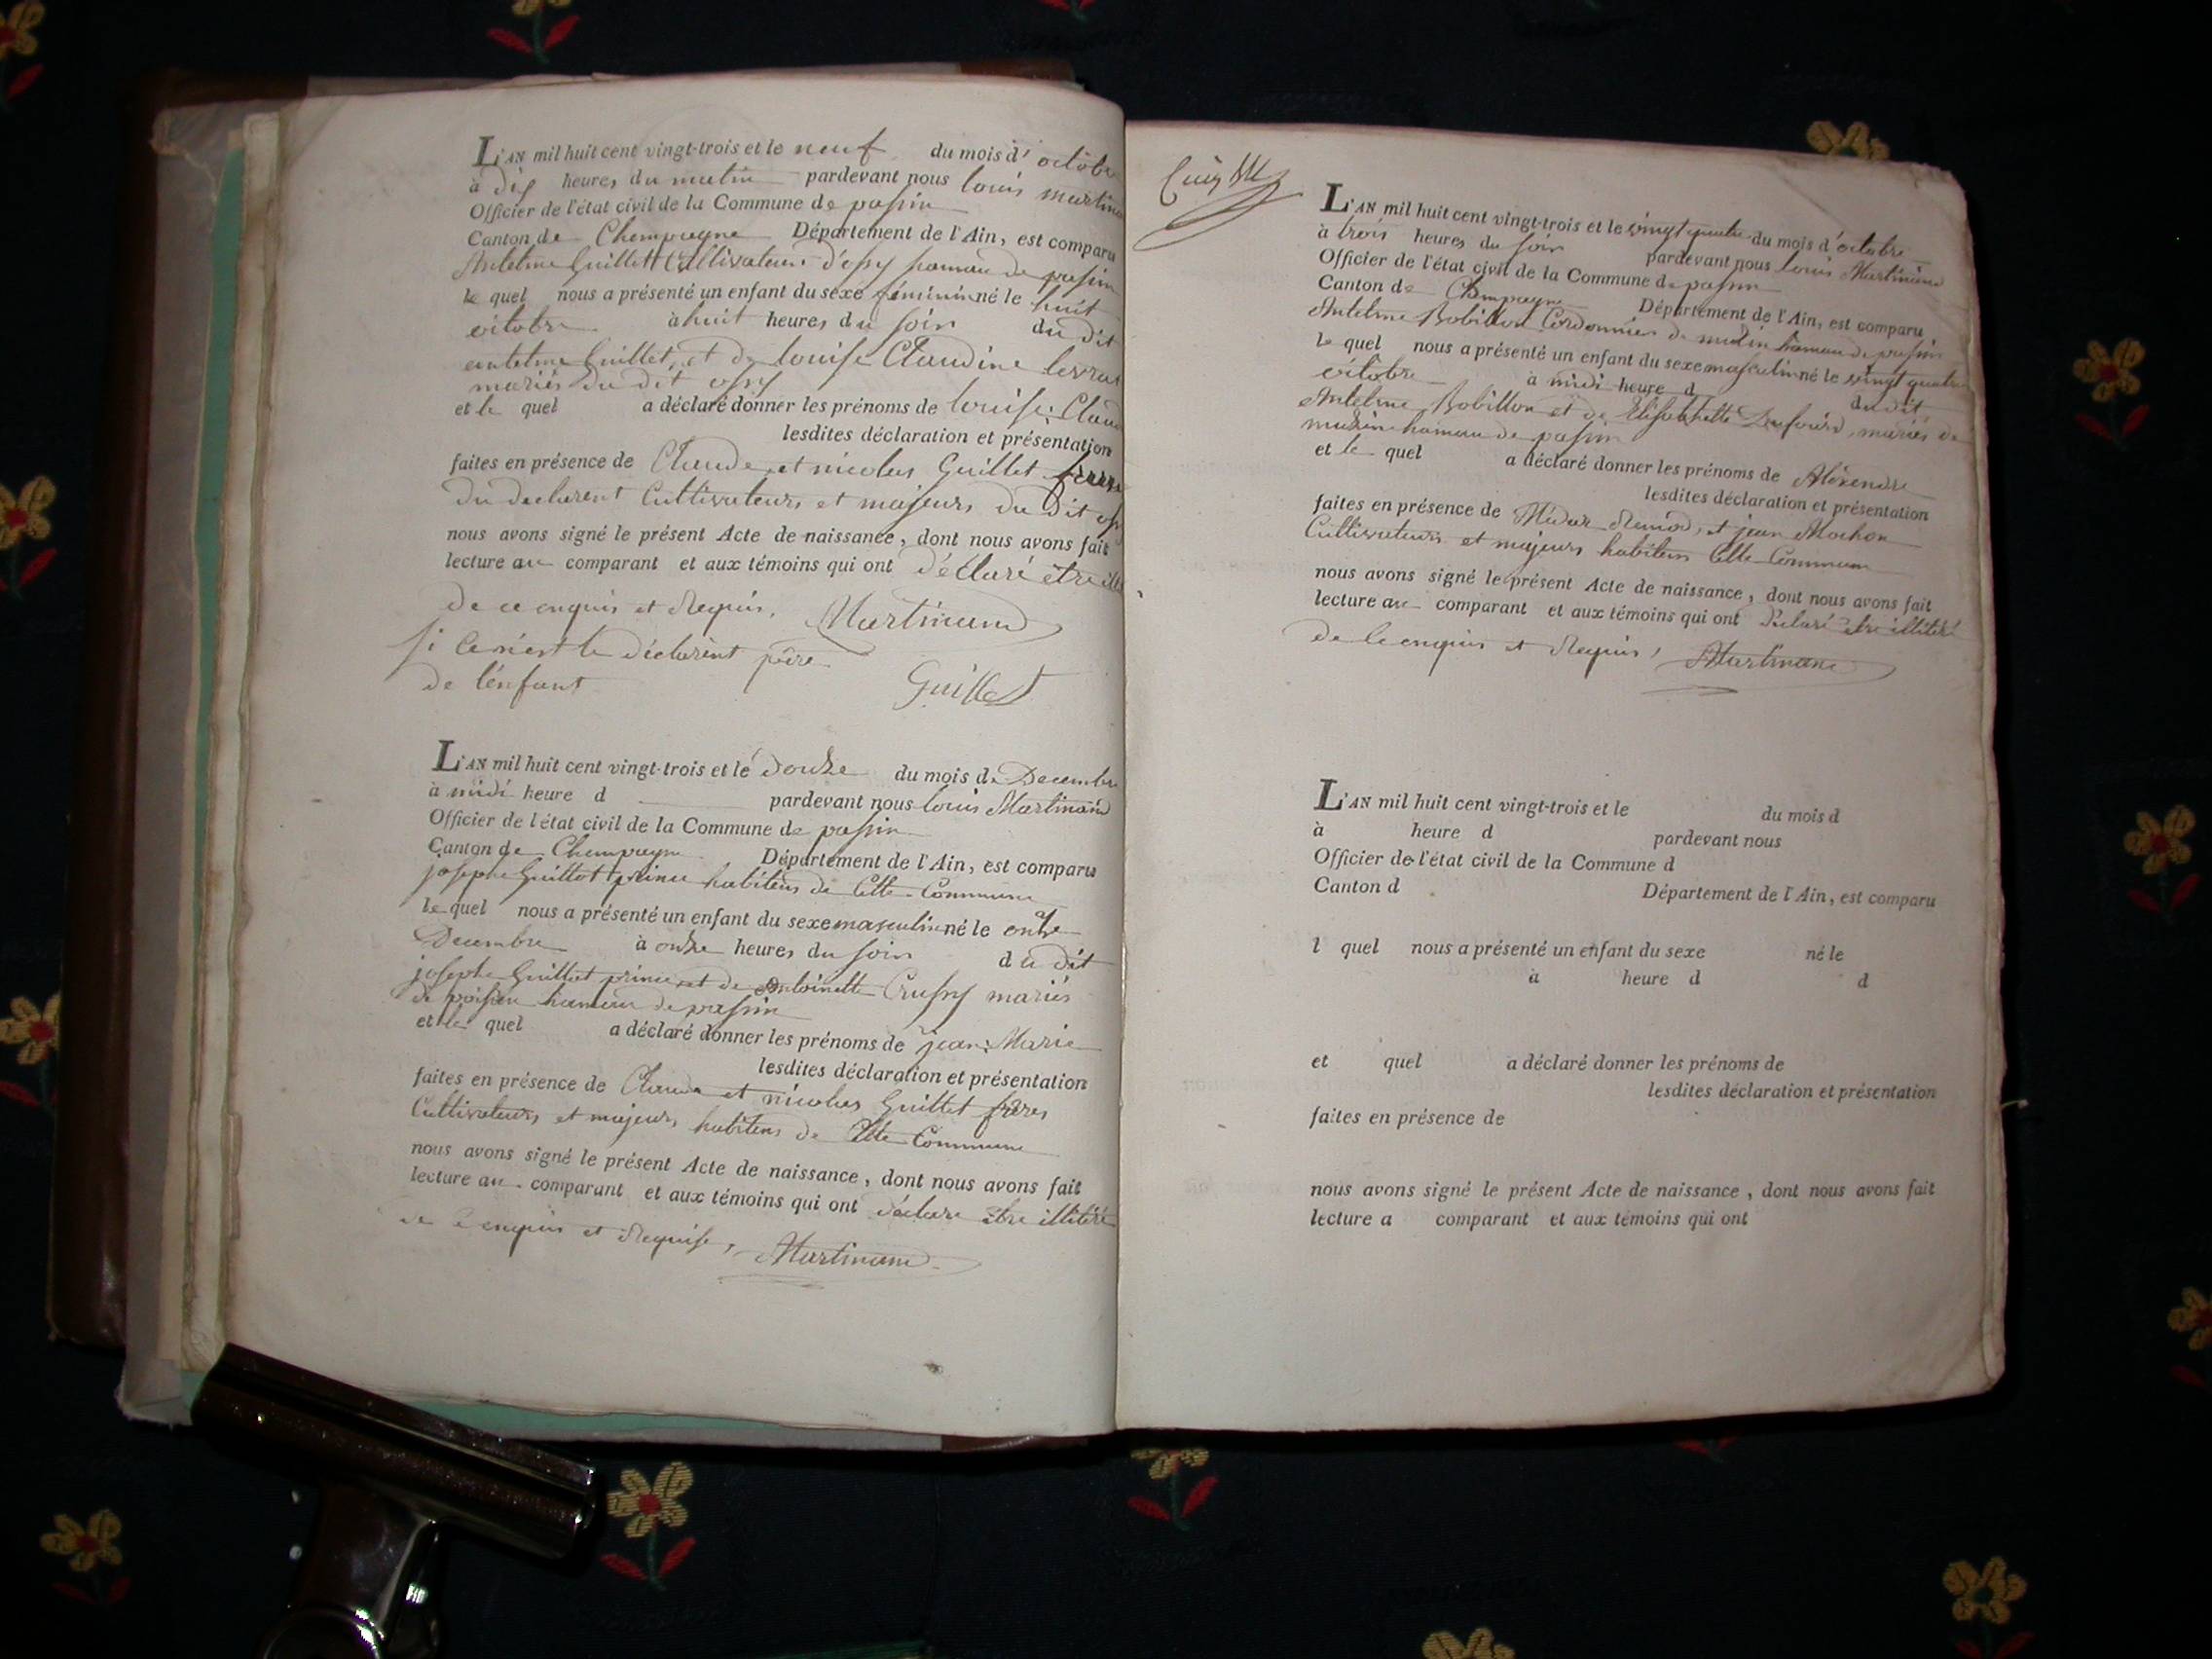 L'AN mil huit cent vingt-trois et le neuf du mois d' octobre
à dix heures du matin pardevant nous louis martinan
Officier de l'état civil de la Commune de passin
Canton de Champagne Département de l'Ain, est comparu
Antelme Guillet Cultivateur d'ossy hamau de passin
le quel nous a présenté un enfant du sexe féminin né le huit
octobre à huit heures du soir du dit
antelme Guillet, et de louise Claudine
mariés du dit ossy
et le quel a déclaré donner les prénoms de louise Claud
lesdites déclaration et présentation
faites en présence de Claude et nicolas Guillet frere
du declarent Cultivateurs et majeurs du dit os
nous avons signé le présent Acte de naissance, dont nous avons fait
lecture au comparant et aux témoins qui ont déclaré être ill
de ce enquis et Requis, Martinand
si ce n'est le déclarent père
de l'enfant Guillet
L'AN mil huit cent vingt-trois et le douze du mois de Decembre
à midi heure d pardevant nous louis Martinand
Officier de l'état civil de la Commune de passin
Canton de Champagne Département de l'Ain, est comparu
josephe Guillot prince habitens de Cette Commune
le quel nous a présenté un enfant du sexe masculin né le onze
Decembre à onze heures du soir du dit
josephe Guillot prince et de Antoinette Crussy mariés
de hameau de passin
et le quel a déclaré donner les prénoms de jean Marie
lesdites déclaration et présentation
faites en présence de Claude et nicolas Guillet frères
Cultivateurs et majeurs habitens de Cette Commune
nous avons signé le présent Acte de naissance, dont nous avons fait
lecture au comparant et aux témoins qui ont déclaré être illitéré
de ce enquis et Requise, Martinand
L'AN mil huit cent vingt-trois et le vingt quatre du mois d'octobre
à trois heures du soir pardevant nous louis Martinand
Officier de l'état civil de la Commune de passin
Canton de Champagne Département de l'Ain, est comparu
Antelme Bobillon Cordonnier de hamau de passin
le quel nous a présenté un enfant du sexe masculin né le vingt quatre
octobre à midi heure d du dit
Antelme Bobillon et de Elisabhette mariés de
hamau de passin
et le quel a déclaré donner les prénoms de Aléxendre
lesdites déclaration et présentation
faites en présence de et jean Mochon
Cultivateurs et majeurs habitens Cette Commune
nous avons signé le présent Acte de naissance, dont nous avons fait
lecture au comparant et aux témoins qui ont déclaré être illitéré
de Ce enquis et Requis, Martinand
L'AN mil huit cent vingt-trois et le du mois d
à heure d pardevant nous
Officier de l'état civil de la Commune d
Canton d Département de l'Ain, est comparu
l quel nous a présenté un enfant du sexe né le
à heure d d
et quel a déclaré donner les prénoms de
lesdites déclaration et présentation
faites en présence de
nous avons signé le présent Acte de naissance, dont nous avons fait
lecture a comparant et aux témoins qui ont